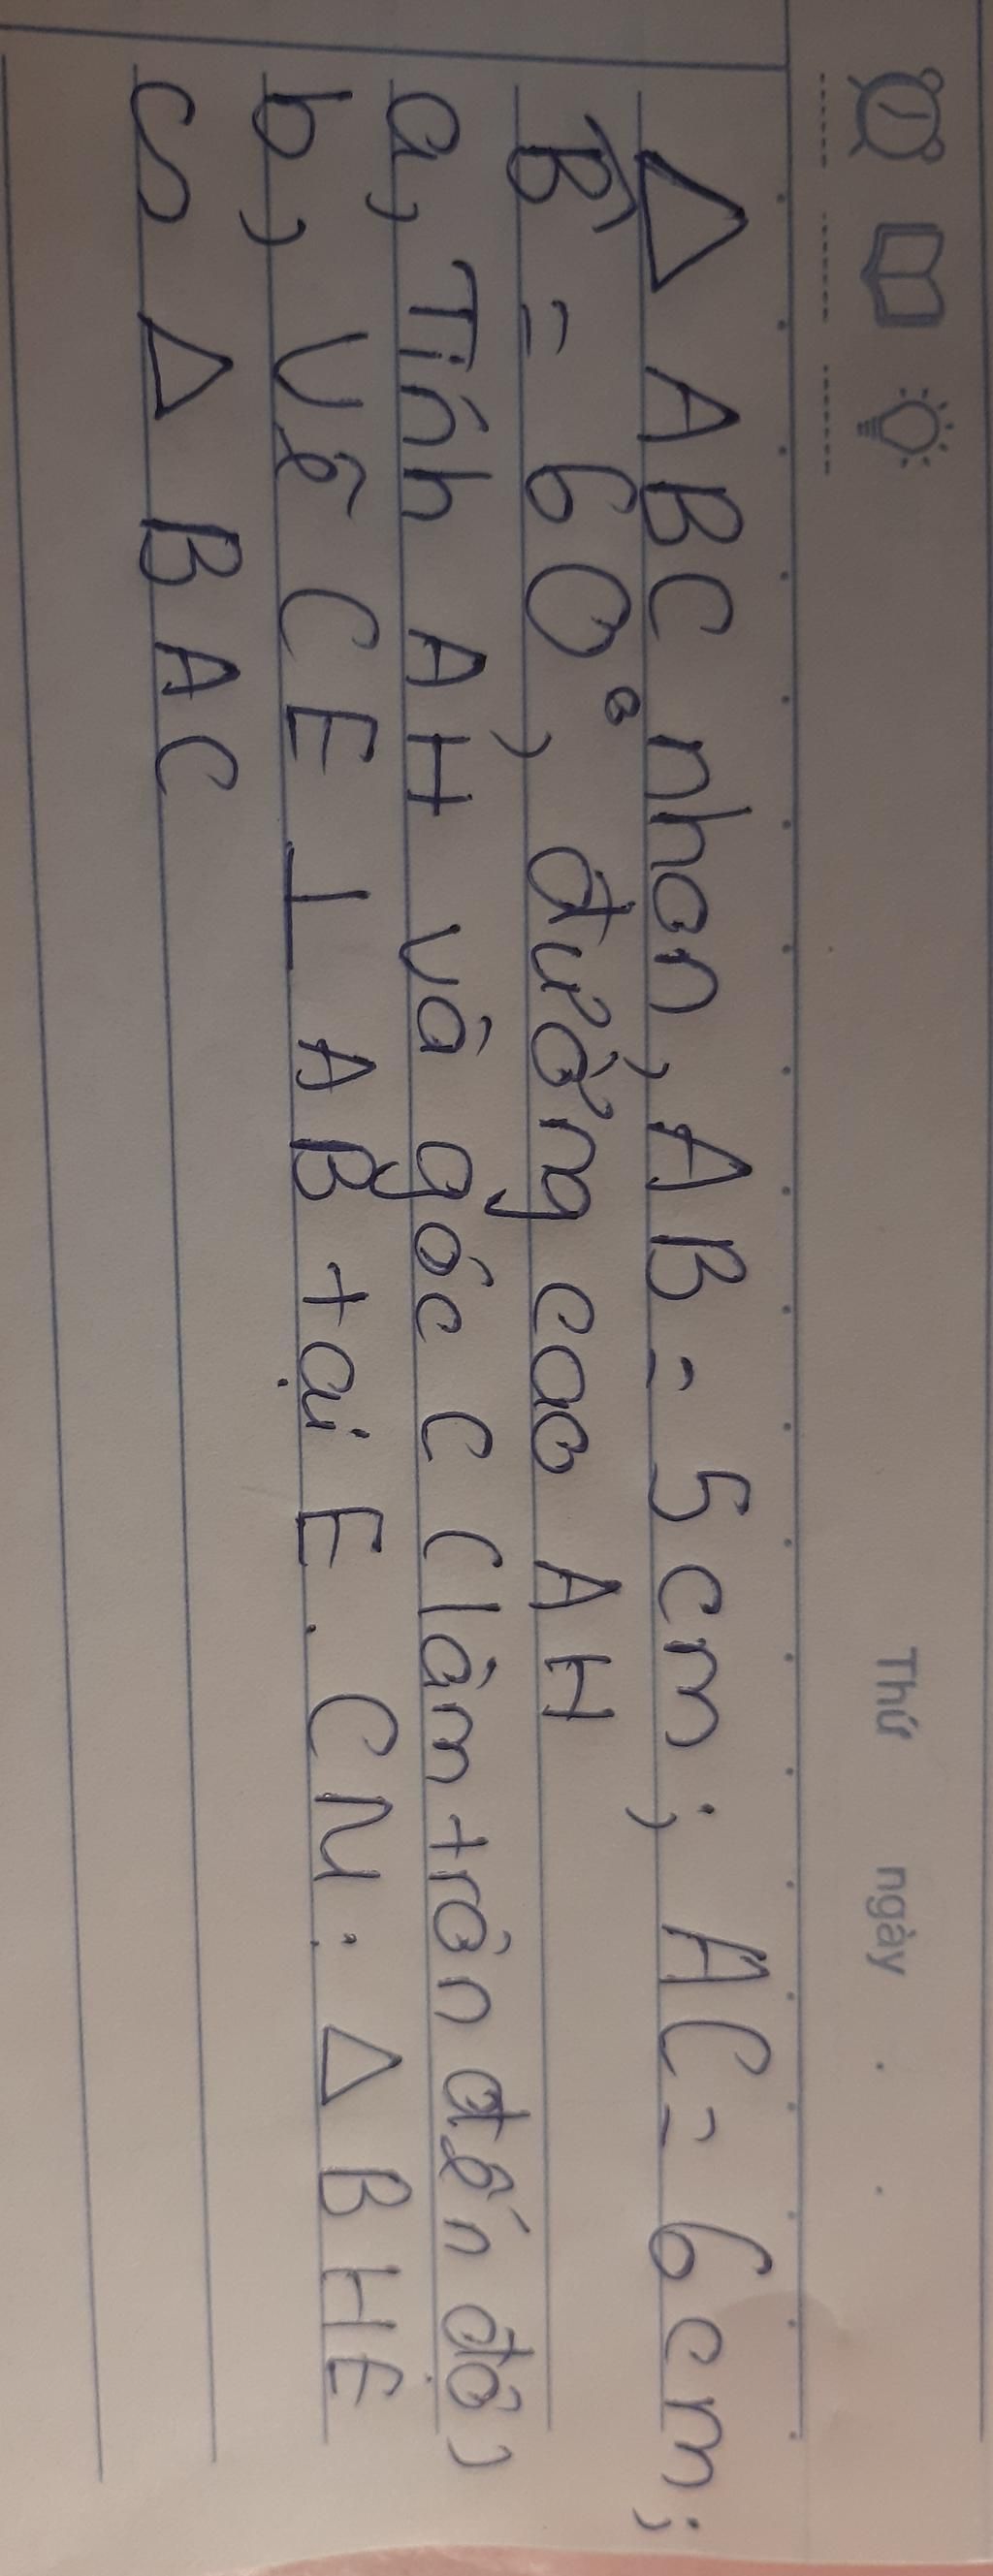 Thứ ngày
Δ ABC nhọn, AB = 5cm; AC = 6cm;
B̂ = 60°, đường cao AH
a, Tính AH và góc C (làm tròn đến độ)
b, Vẽ CE ⊥ AB tại E. CM: Δ BHE
∽ Δ BAC